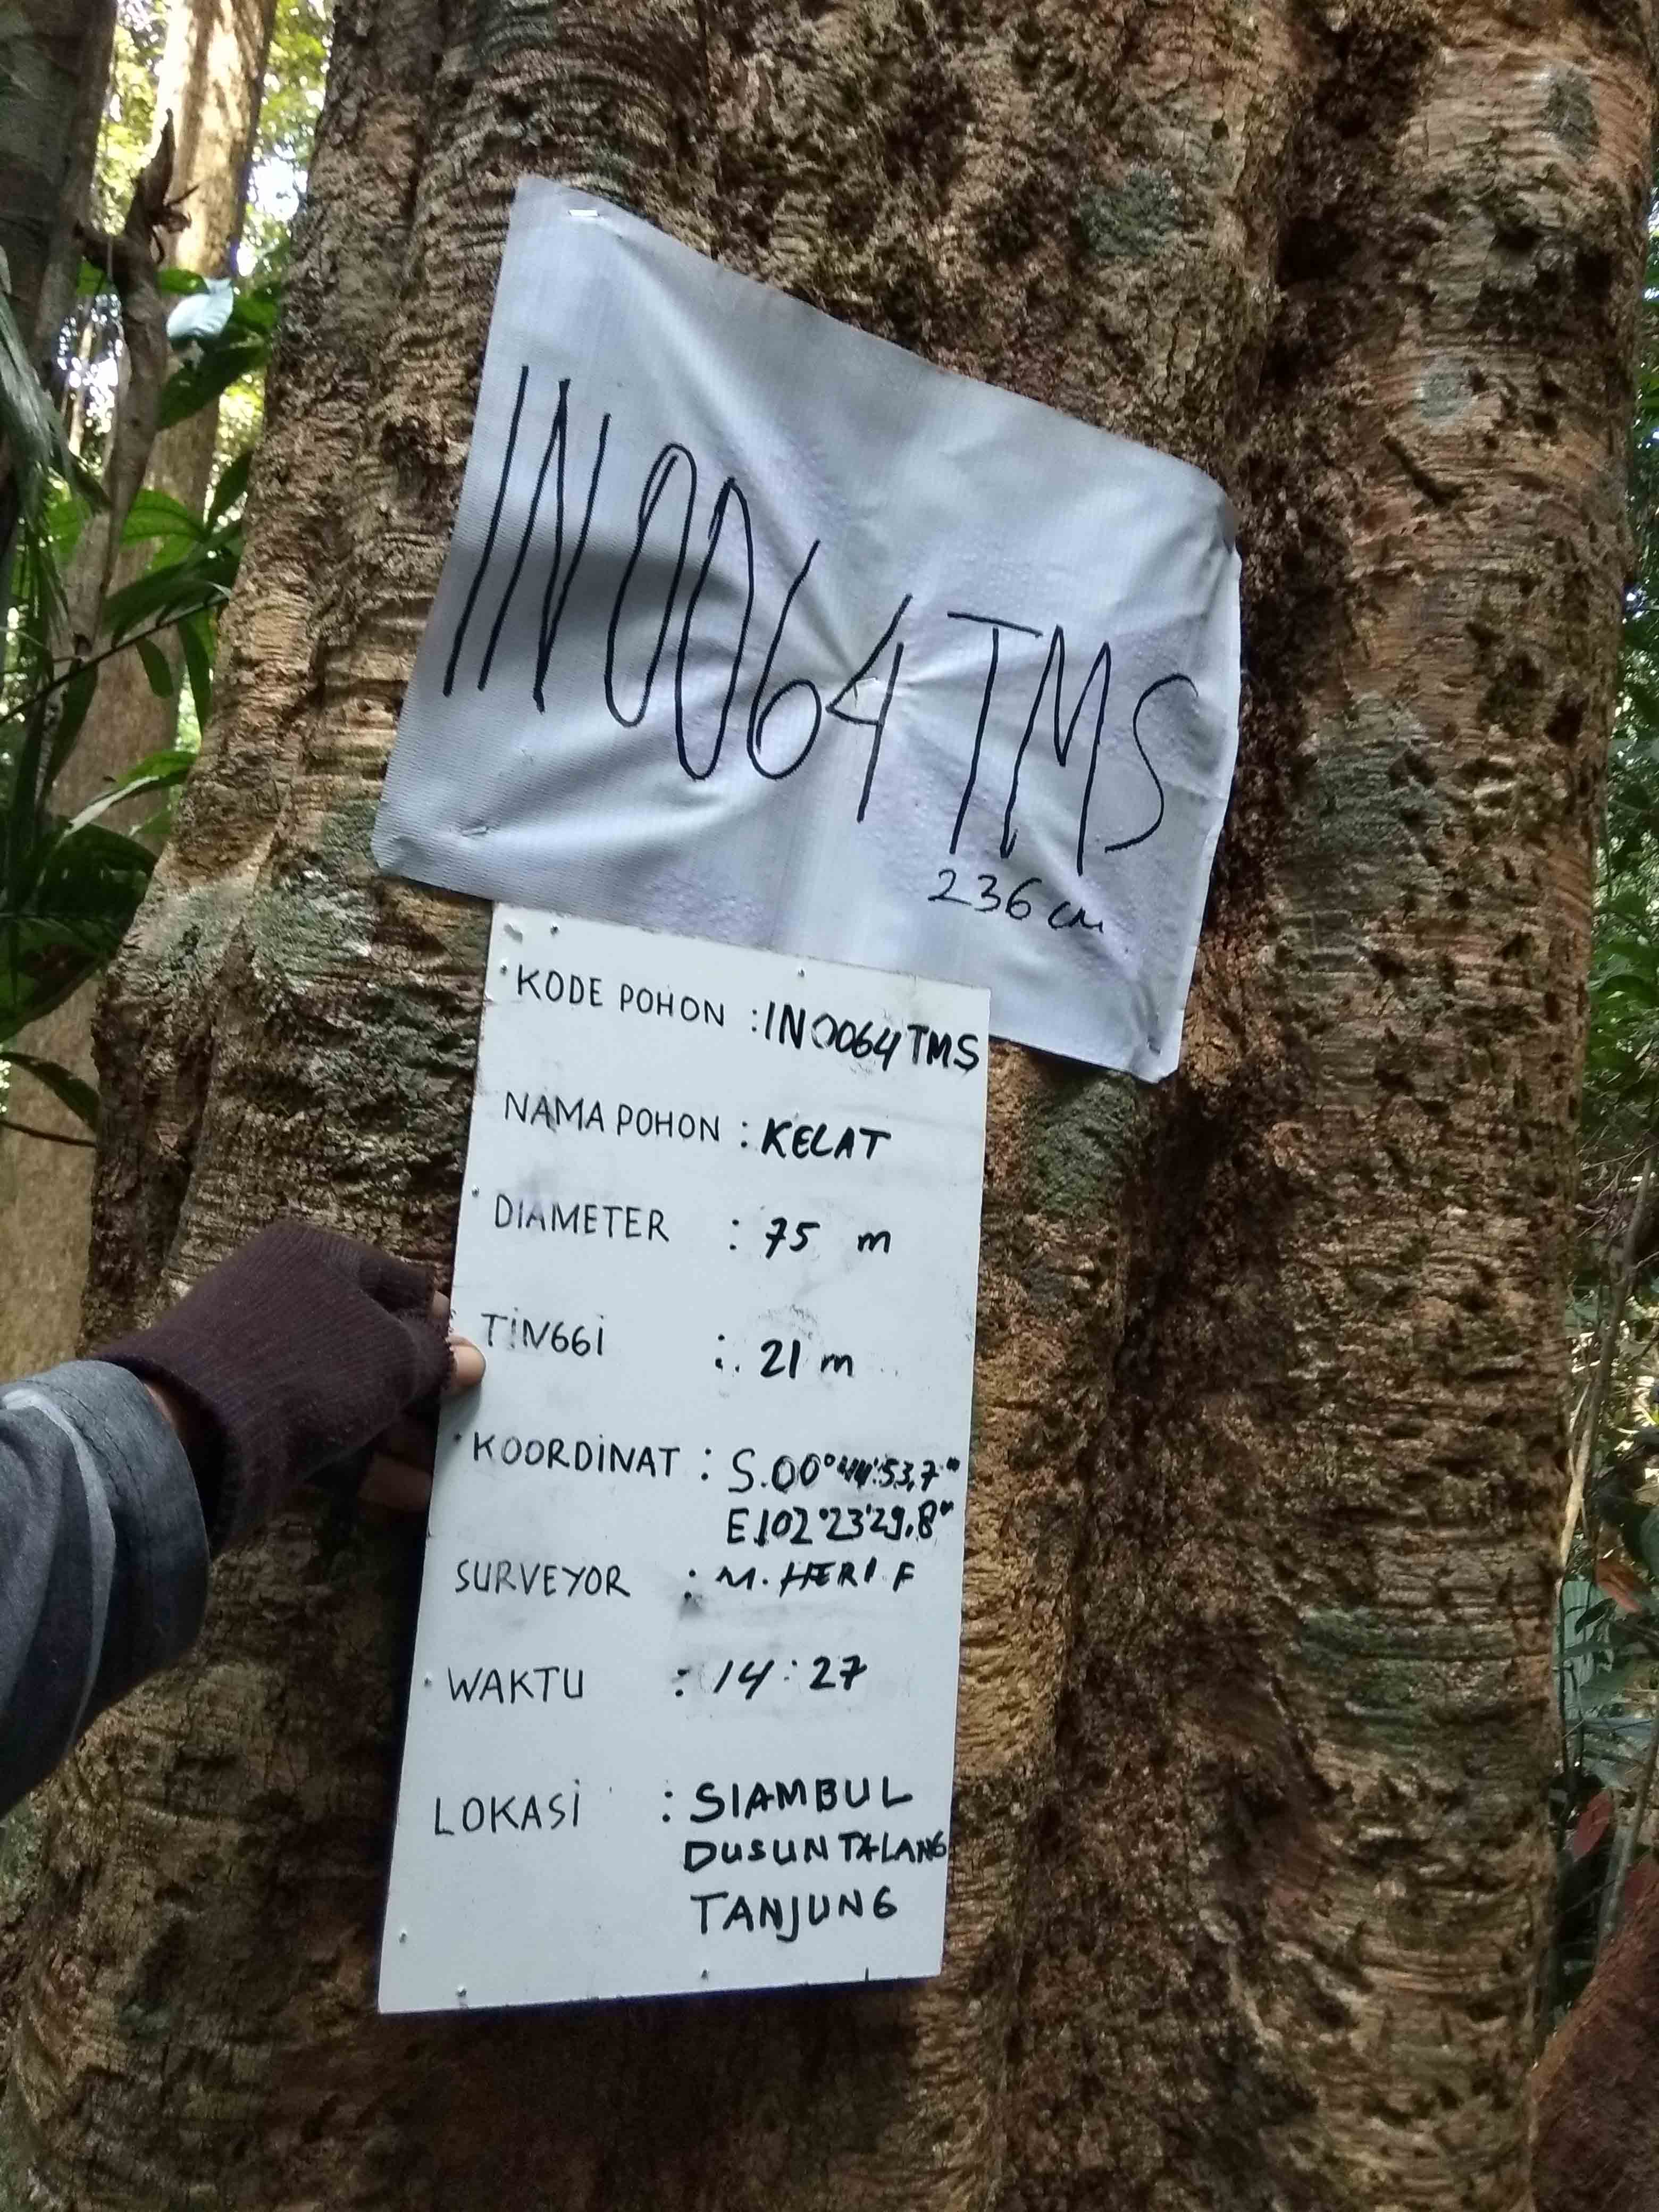 IN0064TMS
236 cm
KODE POHON : IN0064TMS
NAMA POHON : KELAT
DIAMETER : 75 m
TINGGI : 21 m
KOORDINAT : S.00°44'53,7"
E.102°23'29,8"
SURVEYOR : M. HERI F
WAKTU : 14:27
LOKASI : SIAMBUL
DUSUN TALANG
TANJUNG